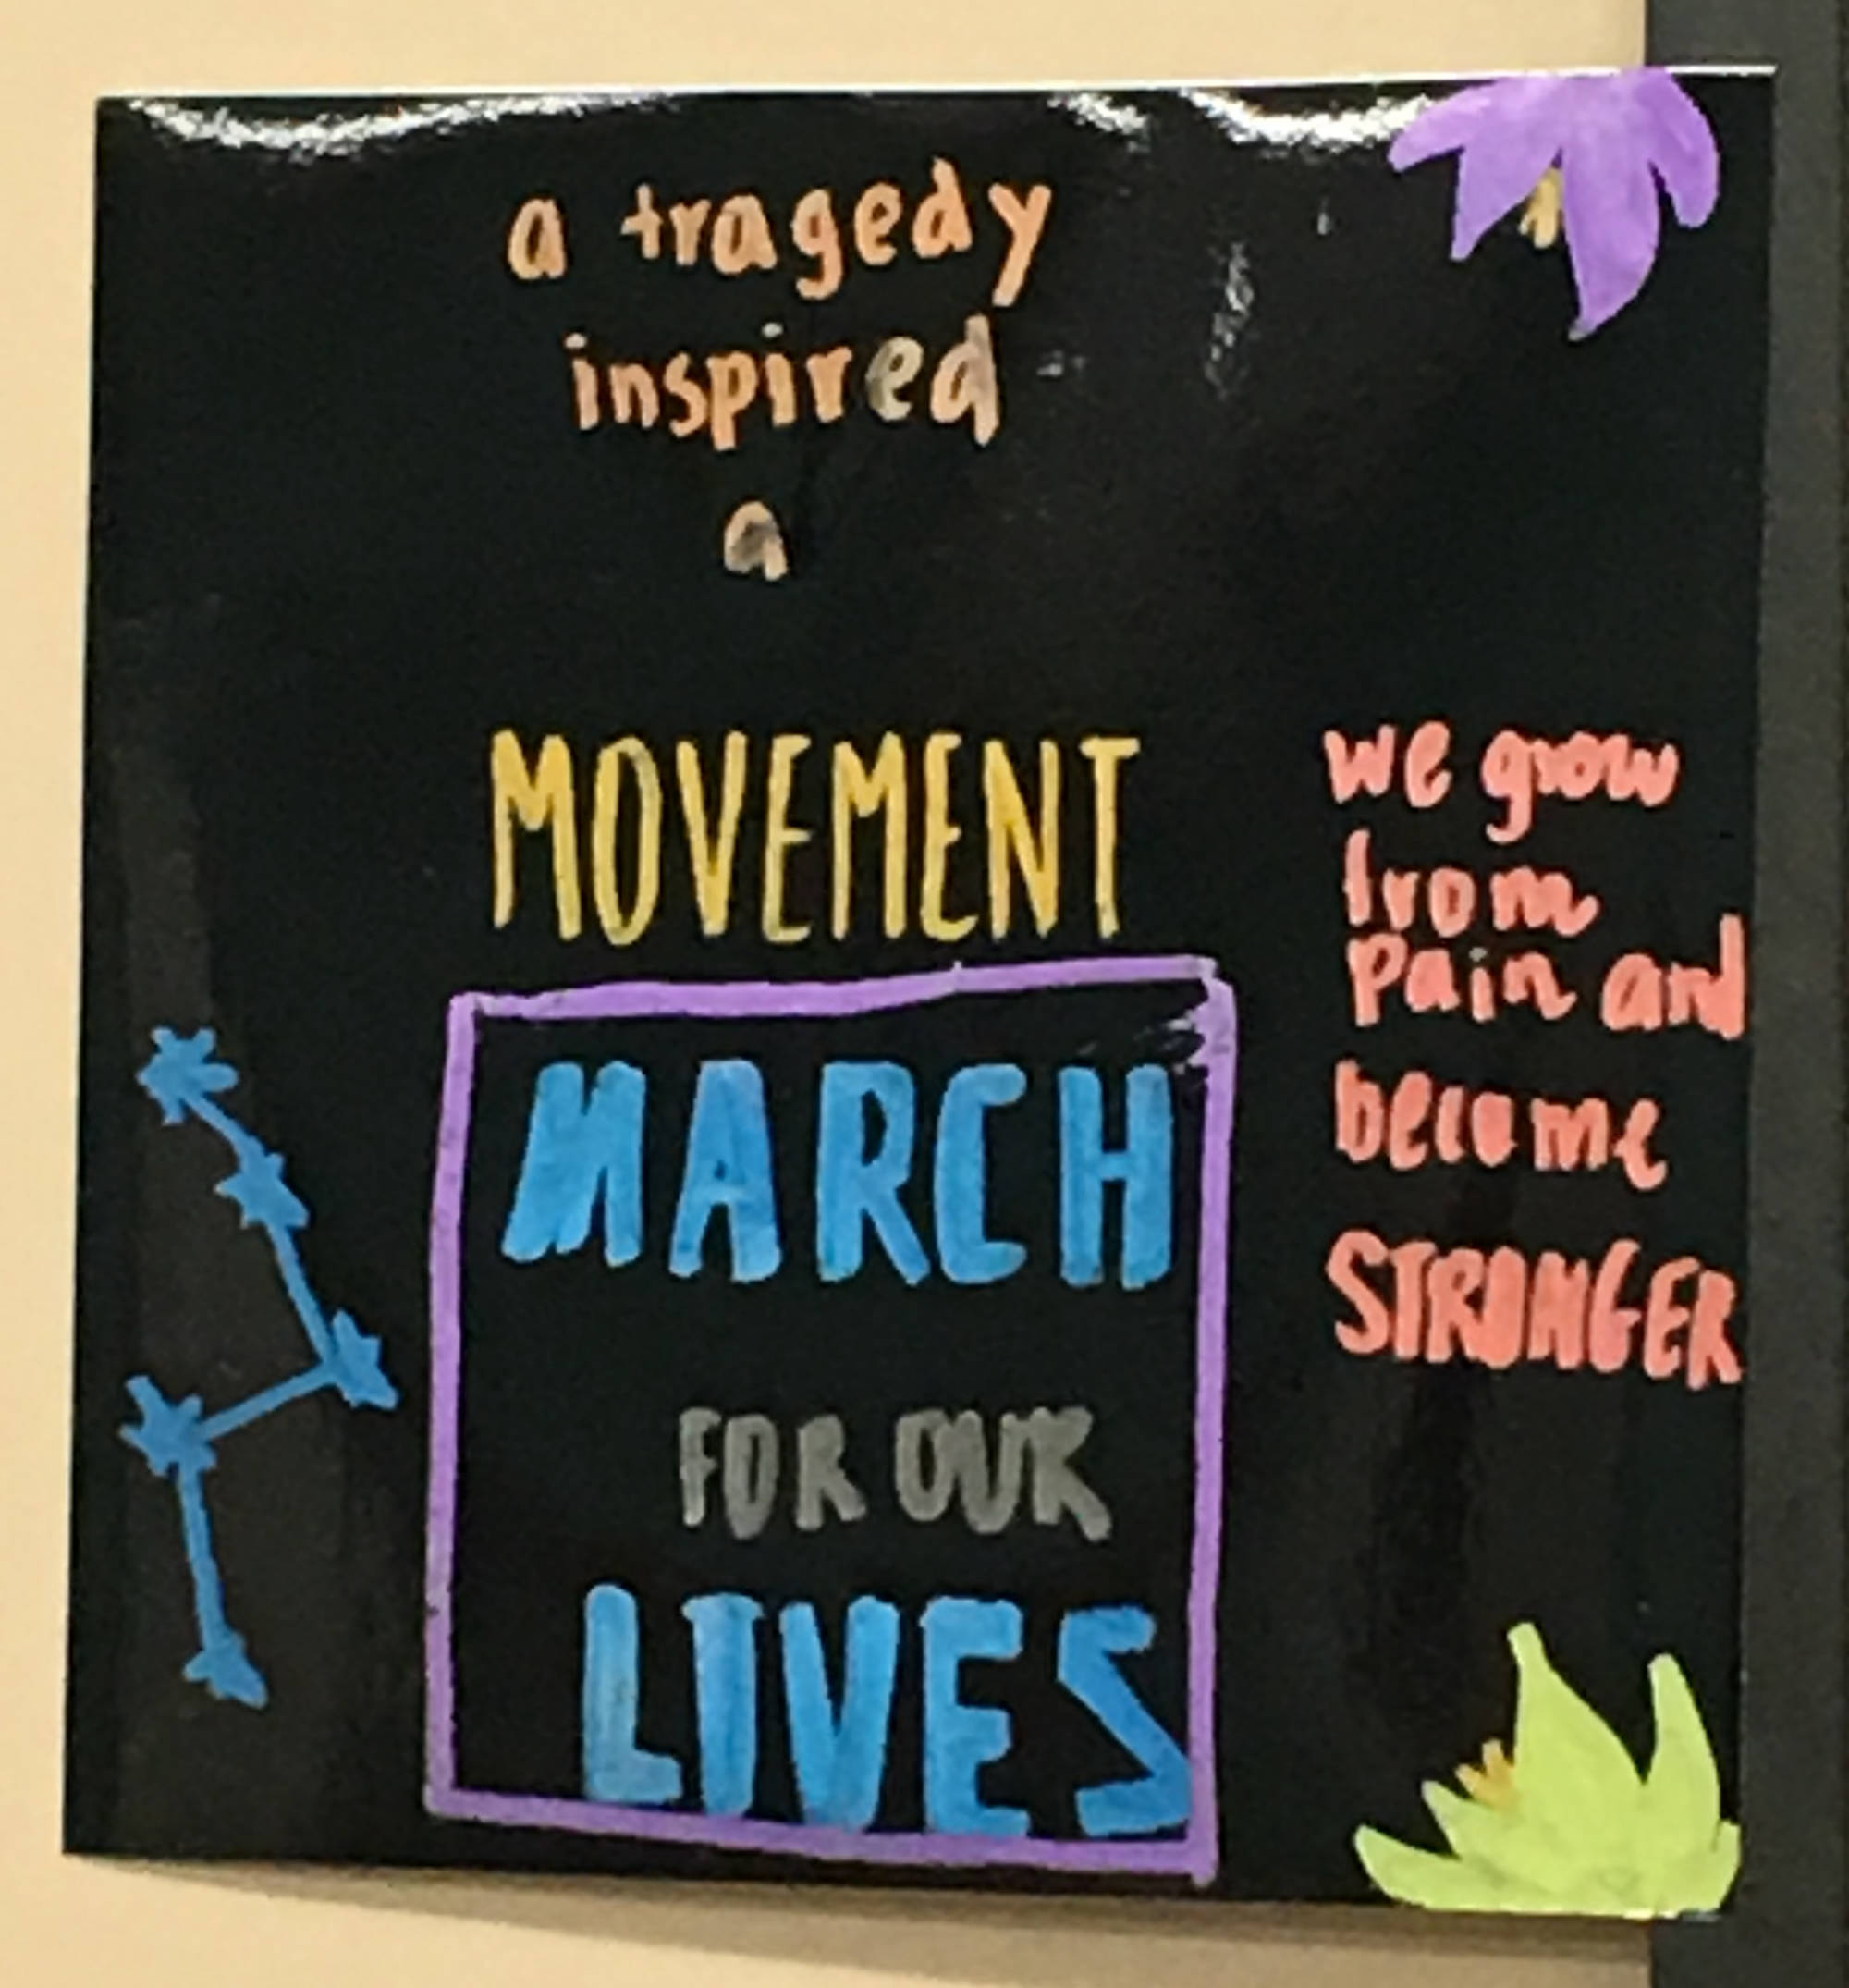 a tragedy
inspired
a
MOVEMENT
MARCH
FOR OUR
LIVES
we grow
from
Pain and
become
STRONGER